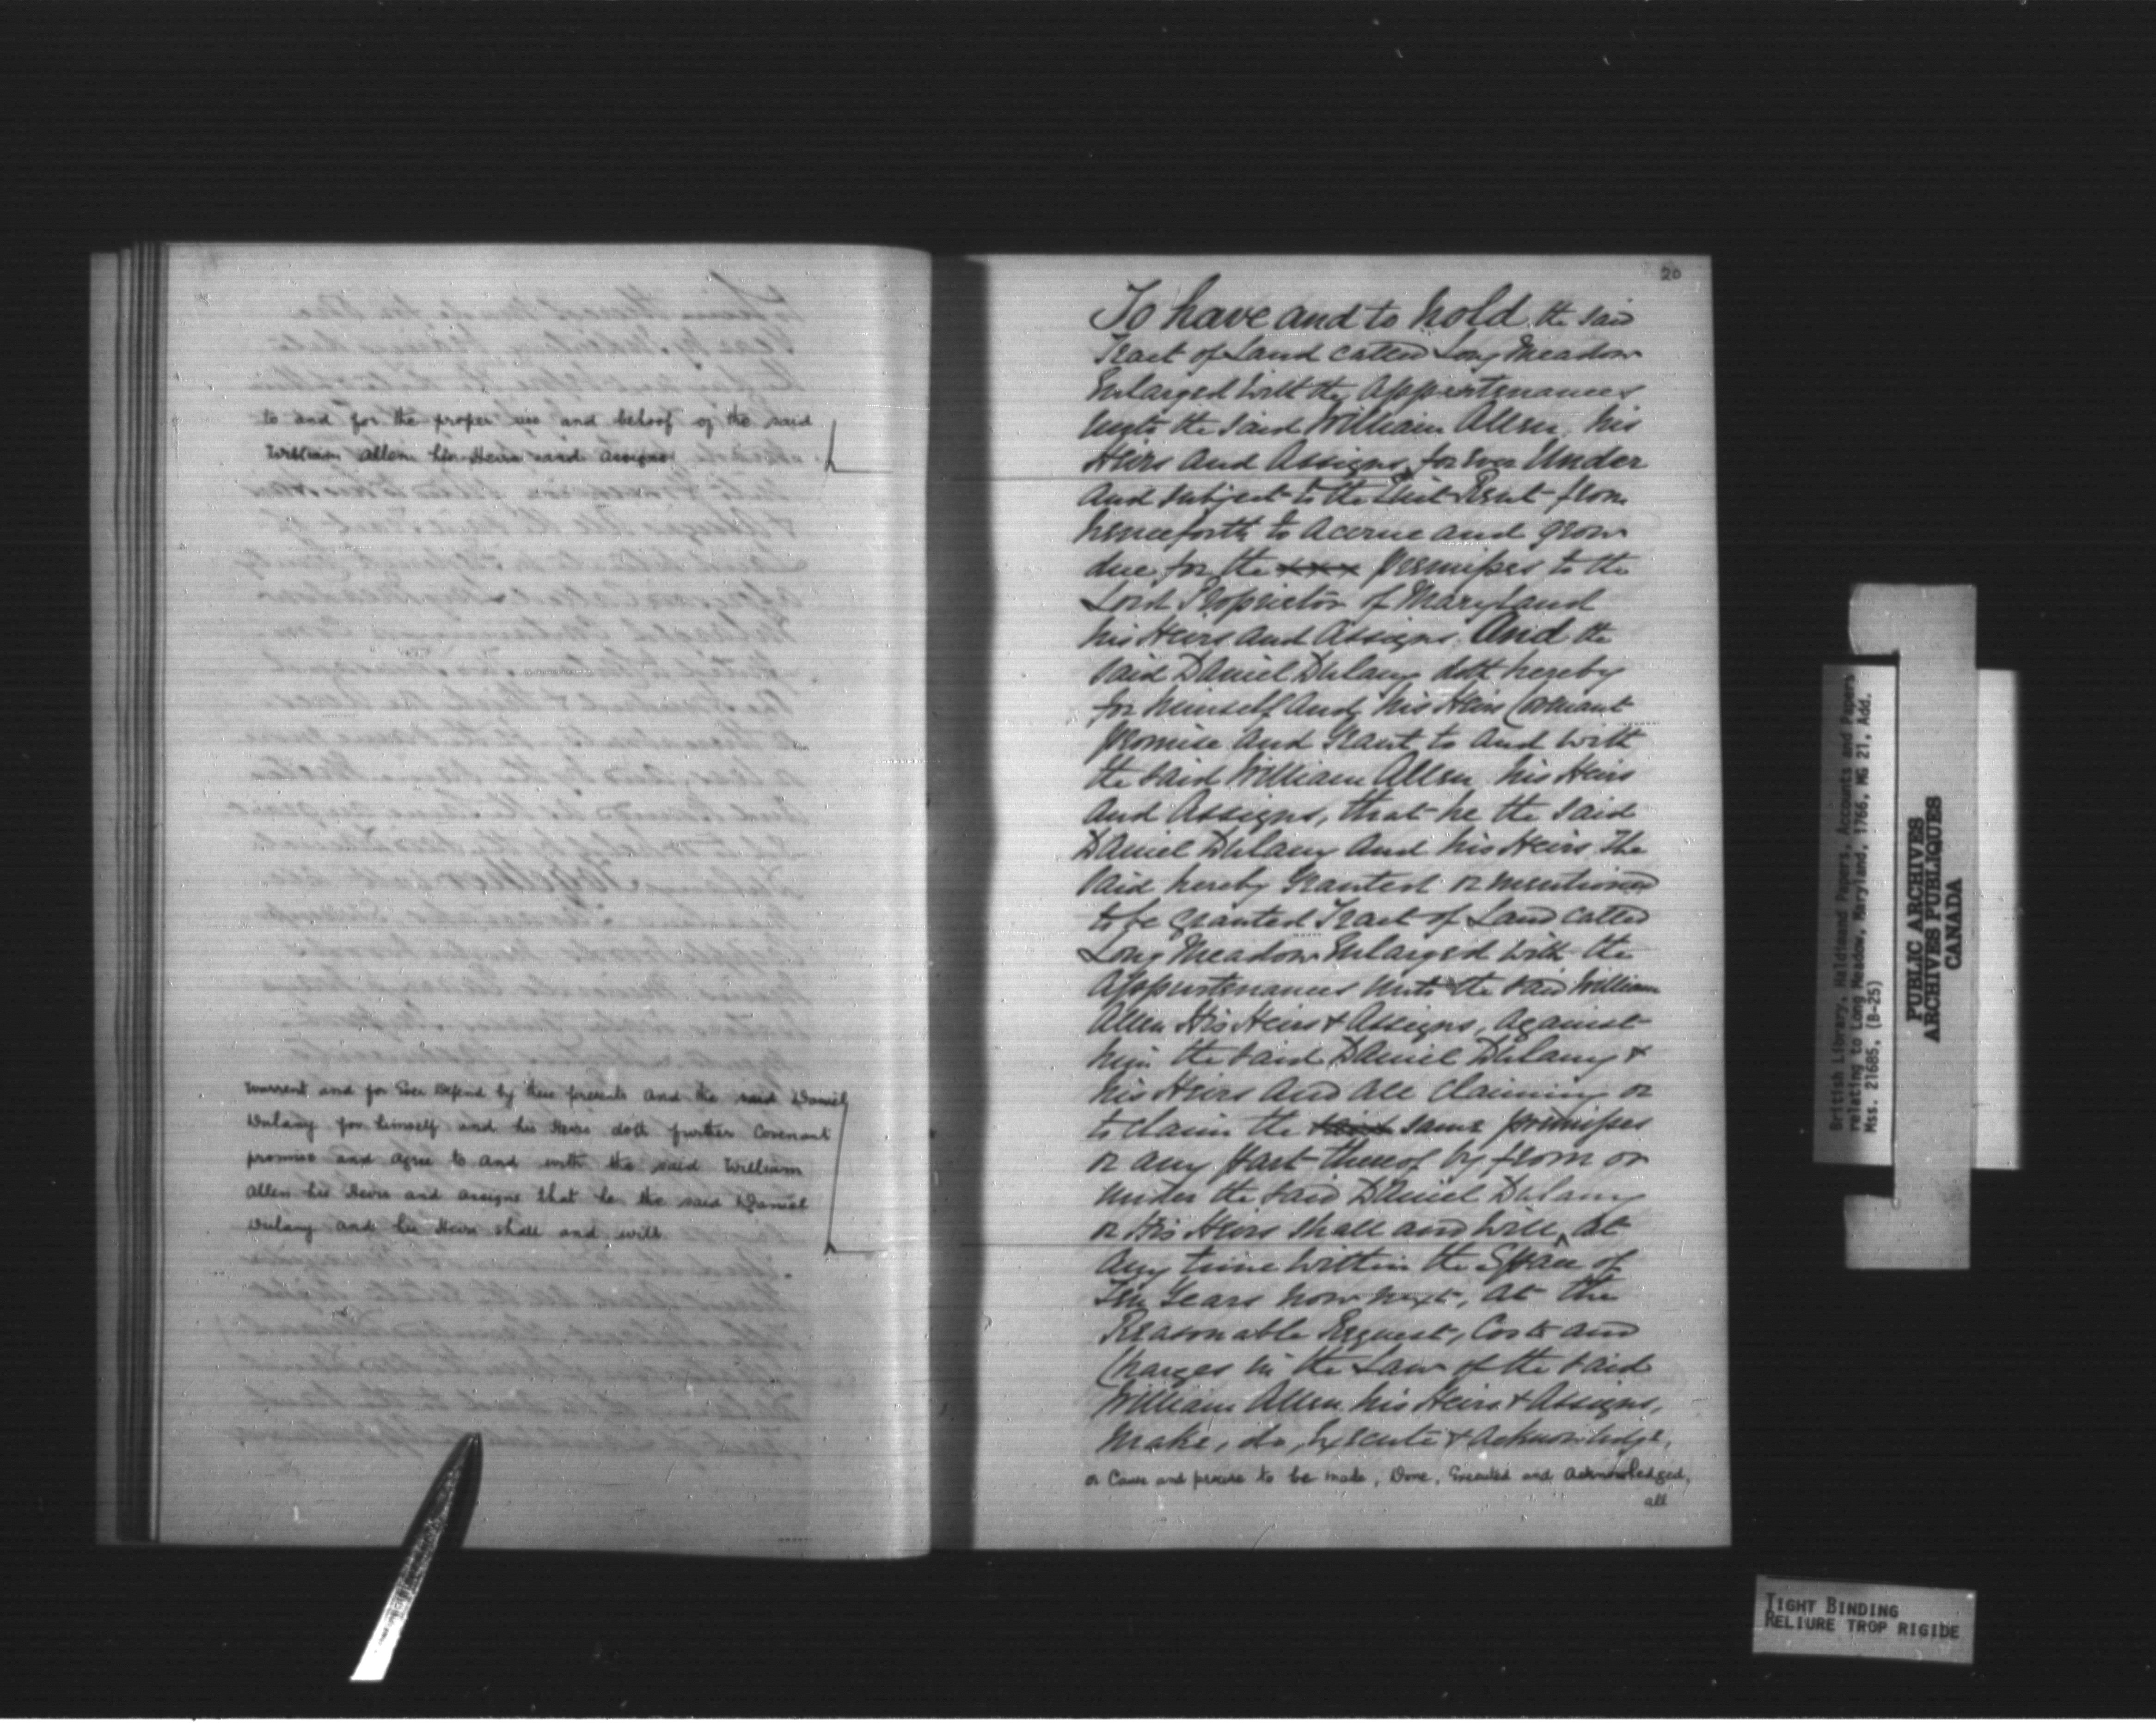 to and for the proper use and behoof of the said
William Allen his Heirs and Assigns
Warrent and for Ever Defend by these presents And the said Daniel
Dulany for himself and his Heirs doth further Covenant
promise and Agree to And with the said William
Allen his Heirs and assigns that he the said Daniel
Dulany and his Heirs shall and will
20
To have and to hold the said
Tract of Land called Long Meadow
Enlarged with the Appurtenances
unto the said William Allen, his
Heirs and Assigns for ever Under
and subject to the Quit Rent from
henceforth to Accrue and grow
due for the premisses to the
Lord Proprietor of Maryland
his Heirs and Assigns. And the
said Daniel Dulany doth hereby
for himself and his Heirs Covenant
promise and Grant to and with
the said William Allen his Heirs
and Assigns, that he the said
Daniel Dulany and his Heirs The
said hereby Granted or mentioned
to be Granted Tract of Land called
Long Meadow Enlarged with the
Appurtenances unto the said William
Allen His Heirs & Assigns, Against
him the said Daniel Dulany &
his Heirs and all claiming or
to claim the said same premisses
or any part thereof by from or
under the said Daniel Dulany
or His Heirs shall and will at
any time within the Space of
Ten Years now next, at the
Reasonable Request, Costs and
Charges in the Law of the said
William Allen his Heirs & Assigns,
make, do, Execute & Acknowledge,
or Cause and procure to be made, Done, Executed and Acknowledged,
all
British Library, Haldimand Papers, Accounts and Papers
relating to Long Meadow, Maryland, 1766, MG 21, Add.
Mss. 21685, (B-25)
PUBLIC ARCHIVES
ARCHIVES PUBLIQUES
CANADA
TIGHT BINDING
RELIURE TROP RIGIDE